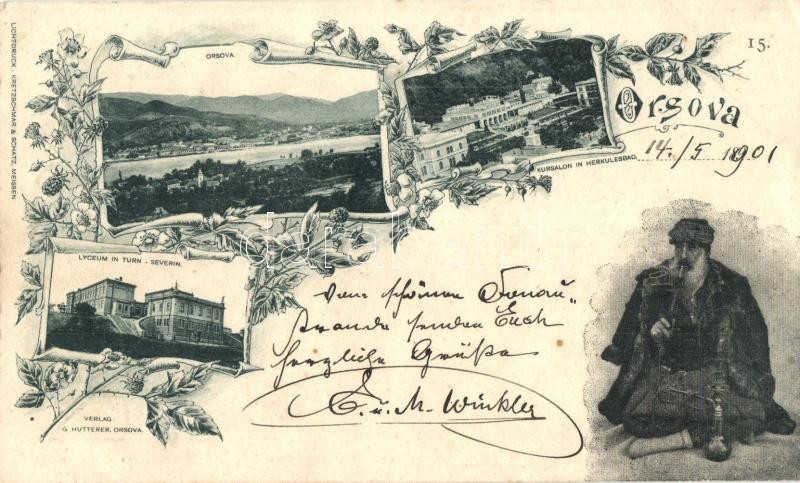 LICHTDRUCK: KRETZSCHMAR & SCHATZ, MEISSEN.
ORSOVA.
15.
KURSALON IN HERKULESBAD.
Orsova
14./5 1901
LYCEUM IN TURN - SEVERIN.
Vom schönen Donau-
strande senden Euch
herzliche Grüße
E. u. M. Winkler
VERLAG:
G. HUTTERER, ORSOVA.